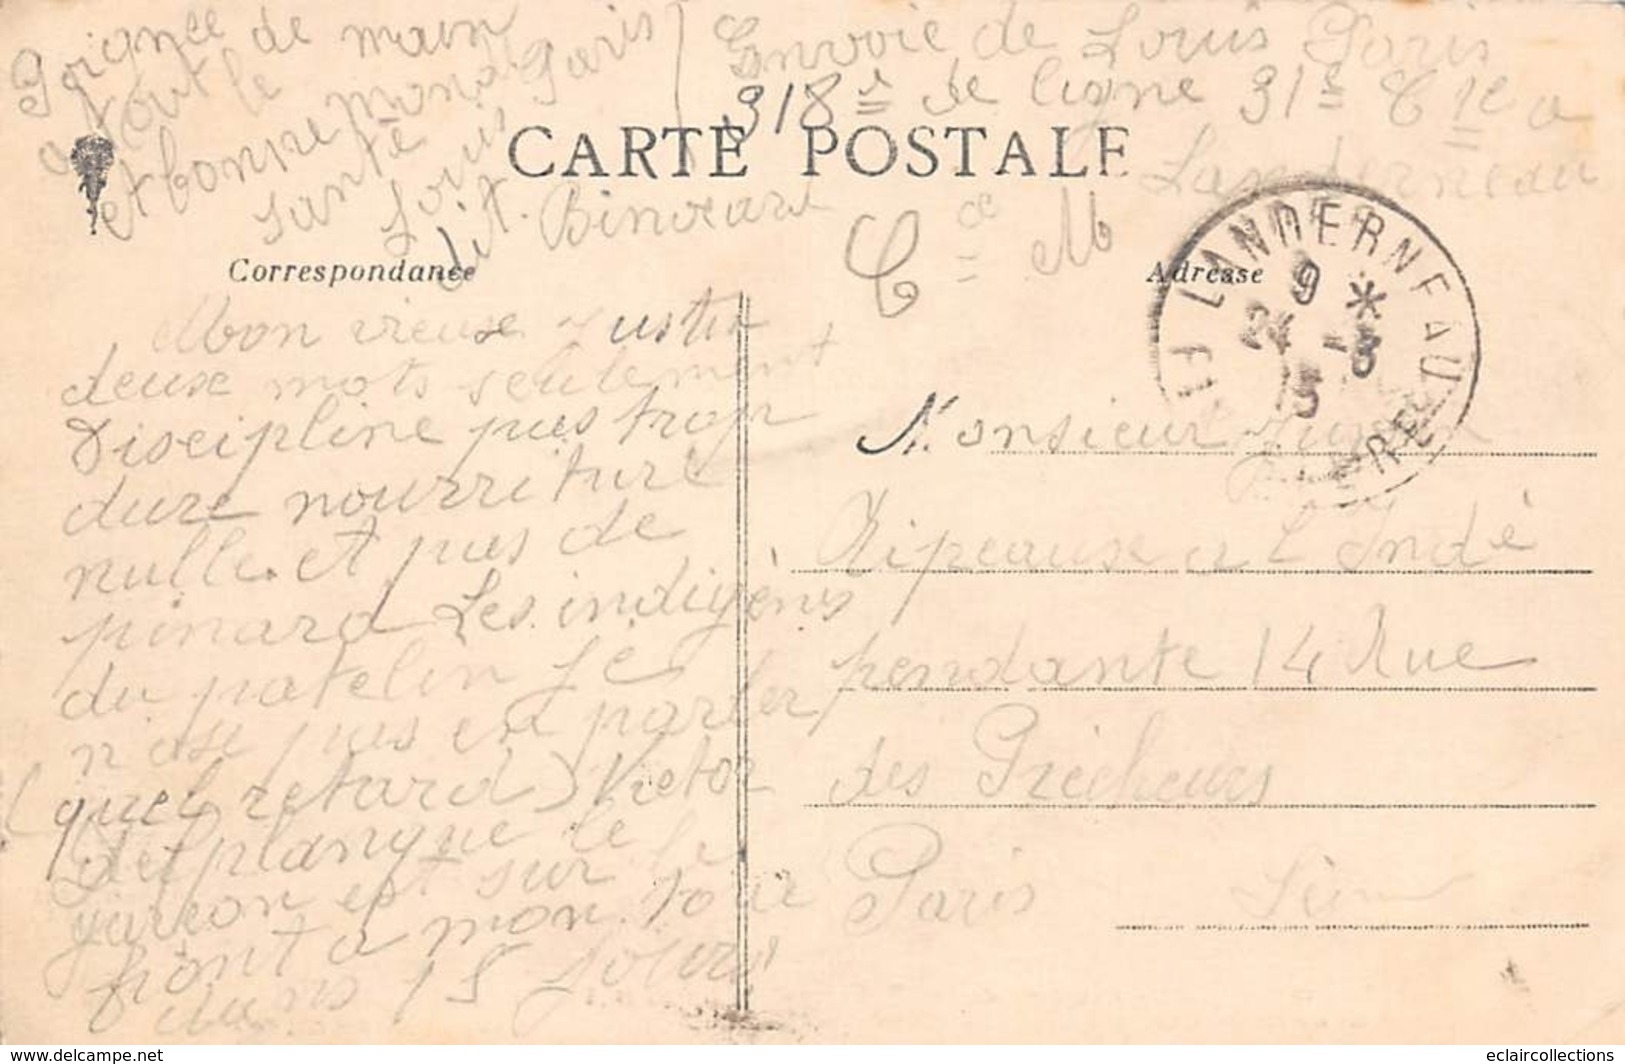 Poignée de main
a tout le
monde Paris
et bonne
santé
Louis
dit. Binocard
Envoie de Louis Paris
318e de ligne 31e Cie a
Landerneau
Cce M
CARTE POSTALE
Correspondance
Adresse
LANDERNEAU
9 *
24 -3
15
FINISTERE
Mon vieux
deux mots seulement
Discipline pas trop
dure nourriture
nulle et pas de
pinard Les indigènes
du patelin Je
n ose pas en parler
(quel retard) Victor
Delplanque le
garcon est sur le
front a mon tour
dans 15 jours
Monsieur
Ripeaux a L Indé
pendante 14 Rue
des Prêcheurs
Paris
eclaircollections
www.delcampe.net